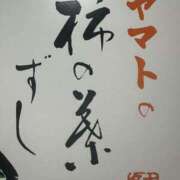 ヤマトの
柿の葉
ずし